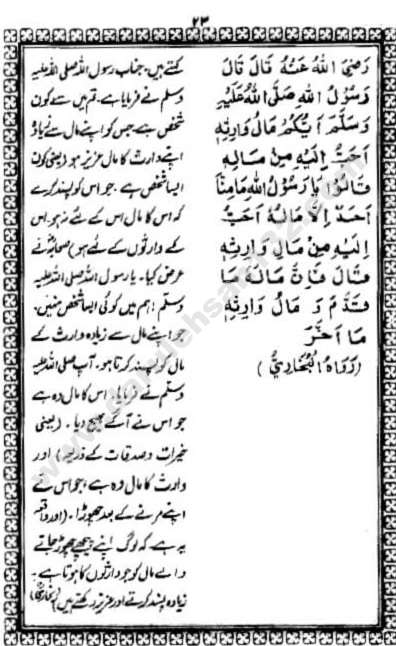 ۲۳
رَضِيَ اللّٰهُ عَنْهُ قَالَ قَالَ
رَسُوْلُ اللّٰهِ صَلَّى اللّٰهُ عَلَيْهِ
وَسَلَّمَ اَيُّكُمْ مَالُ وَارِثِهٖ
اَحَبُّ اِلَيْهِ مِنْ مَالِهٖ
قَالُوْا يَا رَسُوْلَ اللّٰهِ مَا مِنَّا
اَحَدٌ اِلَّا مَالُهٗ اَحَبُّ
اِلَيْهِ مِنْ مَالِ وَارِثِهٖ
قَالَ فَاِنَّ مَالَهٗ مَا
قَدَّمَ وَ مَالُ وَارِثِهٖ
مَا اَخَّرَ
(رَوَاهُ الْبُخَارِيُّ)
کہتے ہیں۔ جناب رسول اللہ صلی اللہ علیہ
وسلم نے فرمایا ہے۔ تم میں سے کون
شخص ہے جس کو اپنے مال سے زیادہ
اپنے وارث کا مال عزیز ہو (یعنی کون
ایسا شخص ہے۔ جو اس کو پسند کرے
کہ اس کا مال اس کے لئے نہ ہو۔ اس
کے وارثوں کے لئے ہو) صحابہؓ نے
عرض کیا۔ یا رسول اللہ صلی اللہ علیہ
وسلم! ہم میں کوئی ایسا شخص نہیں،
جو اپنے مال سے زیادہ وارث کے
مال کو پسند کرتا ہو۔ آپ صلی اللہ علیہ
وسلم نے فرمایا: اس کا مال وہ ہے
جو اس نے آگے بھیج دیا۔ (یعنی
خیرات و صدقات کے ذریعہ) اور
وارث کا مال وہ ہے، جو اس نے
اپنے مرنے کے بعد چھوڑا۔ (اور واقعہ
یہ ہے کہ لوگ اپنے پیچھے چھوڑ جانے
والے مال کو جو وارثوں کا ہوتا ہے۔
زیادہ پسند کرتے اور عزیز رکھتے ہیں) (بخاری)